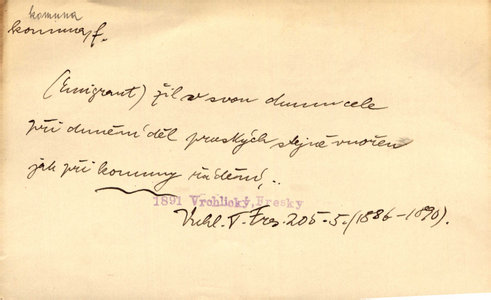 komuna
komuna, f.
(Emigrant) žil v svou dumu cele
při dunění děl pruských stejně vnořen
jak při komuny řádění,..
1891 Vrchlický, Fresky
Vrchl. V. Fres. 205.-5. (1886-1890).